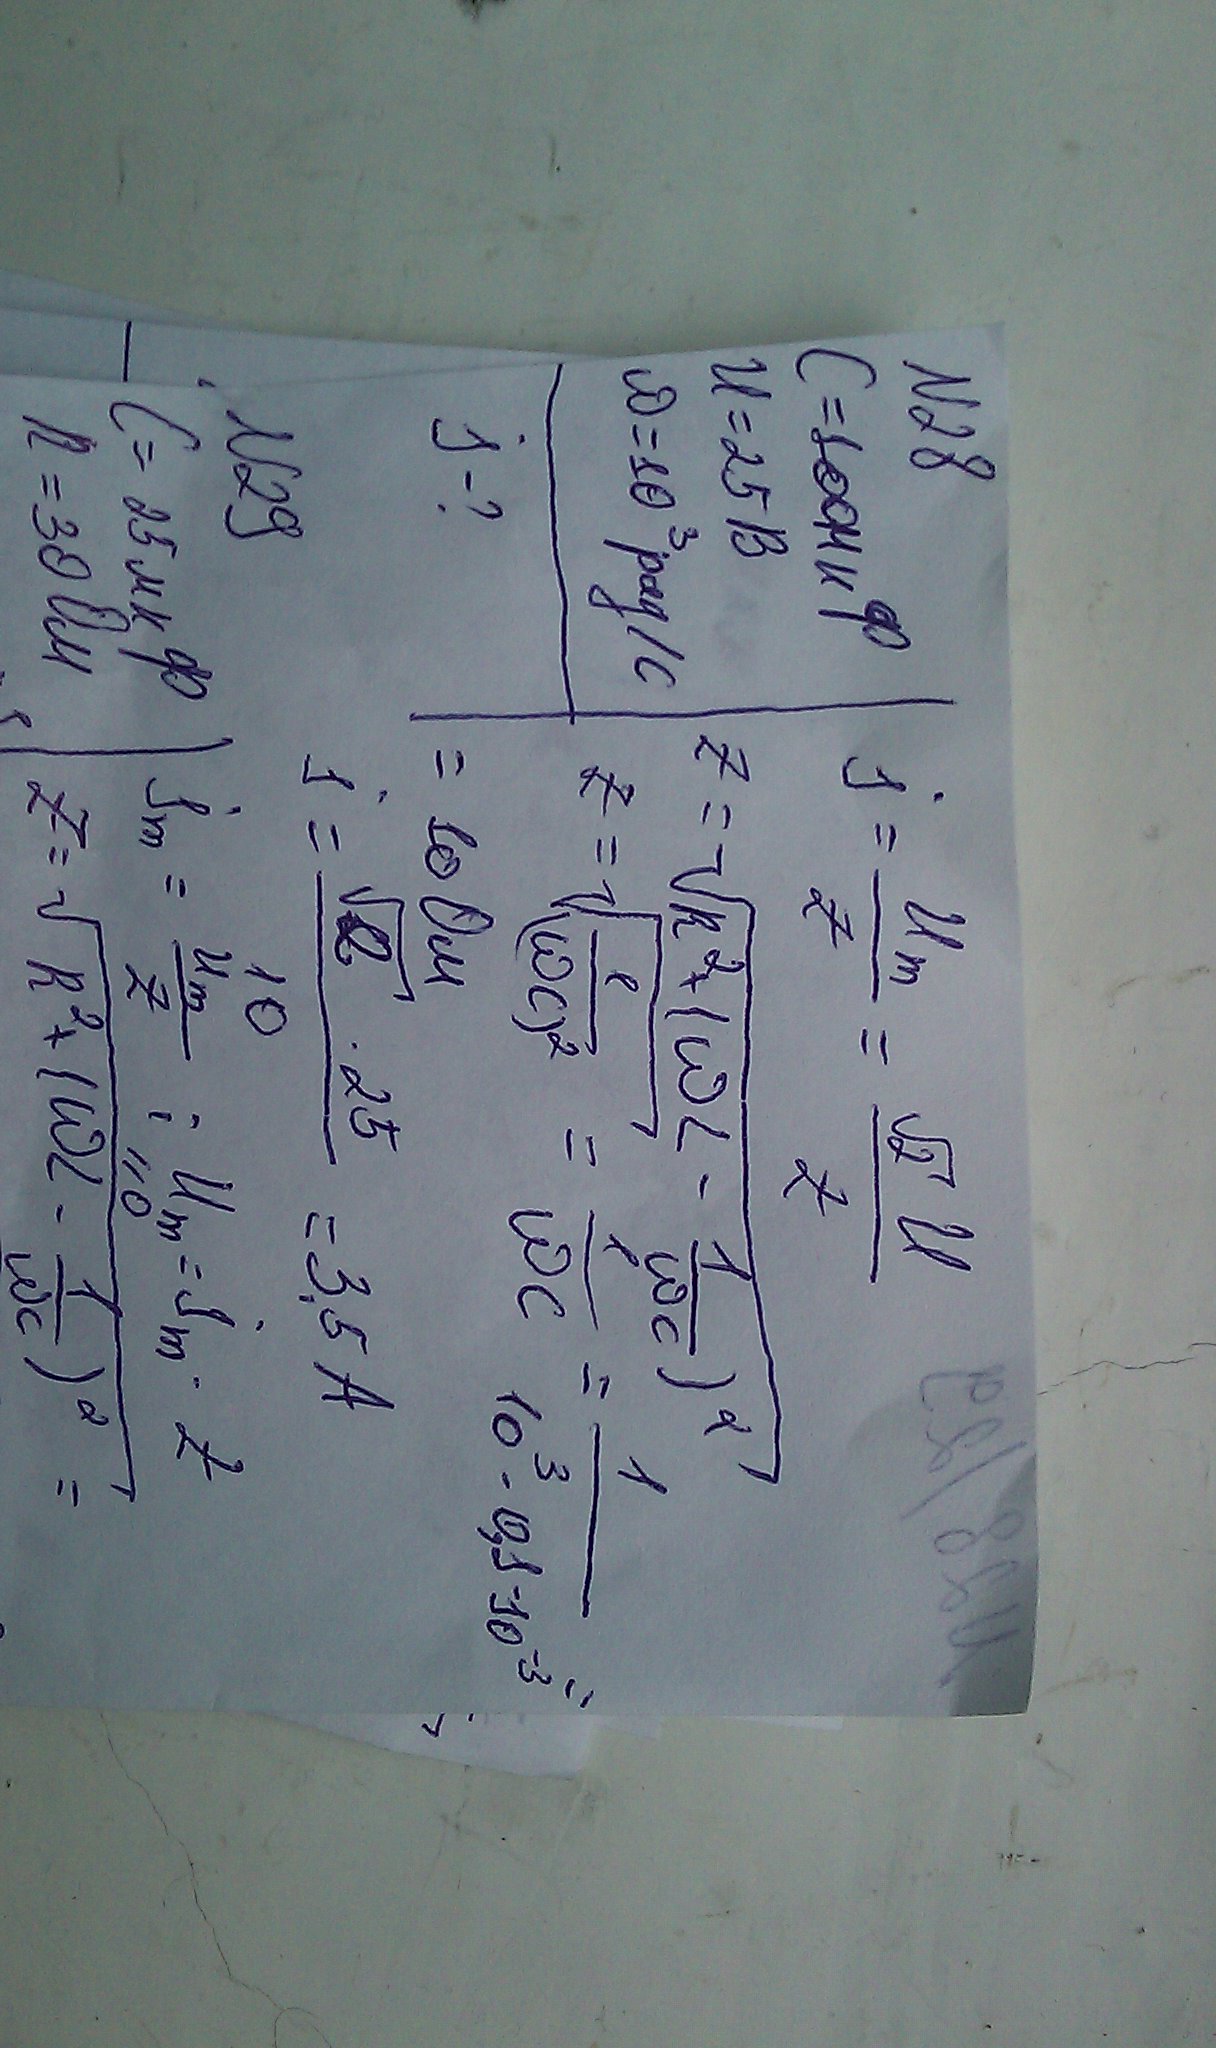 N28
C=100мкф
U=25В
ω=10³рад/с
j-?
j = Um/Z = √2 U/Z
Z = √(R²+(ωL - 1/ωC)²)
Z = √(1/(ωC)²) = 1/ωC = 1/(10³·0,1·10⁻³) =
= 10 Ом
j = √2 · 25/10 = 3,5 А
N29
C = 25мкф
R = 30 Ом
jm = Um/Z ; Um = jm · Z
Z = √(R²+(ωL - 1/ωC)²) =
=0